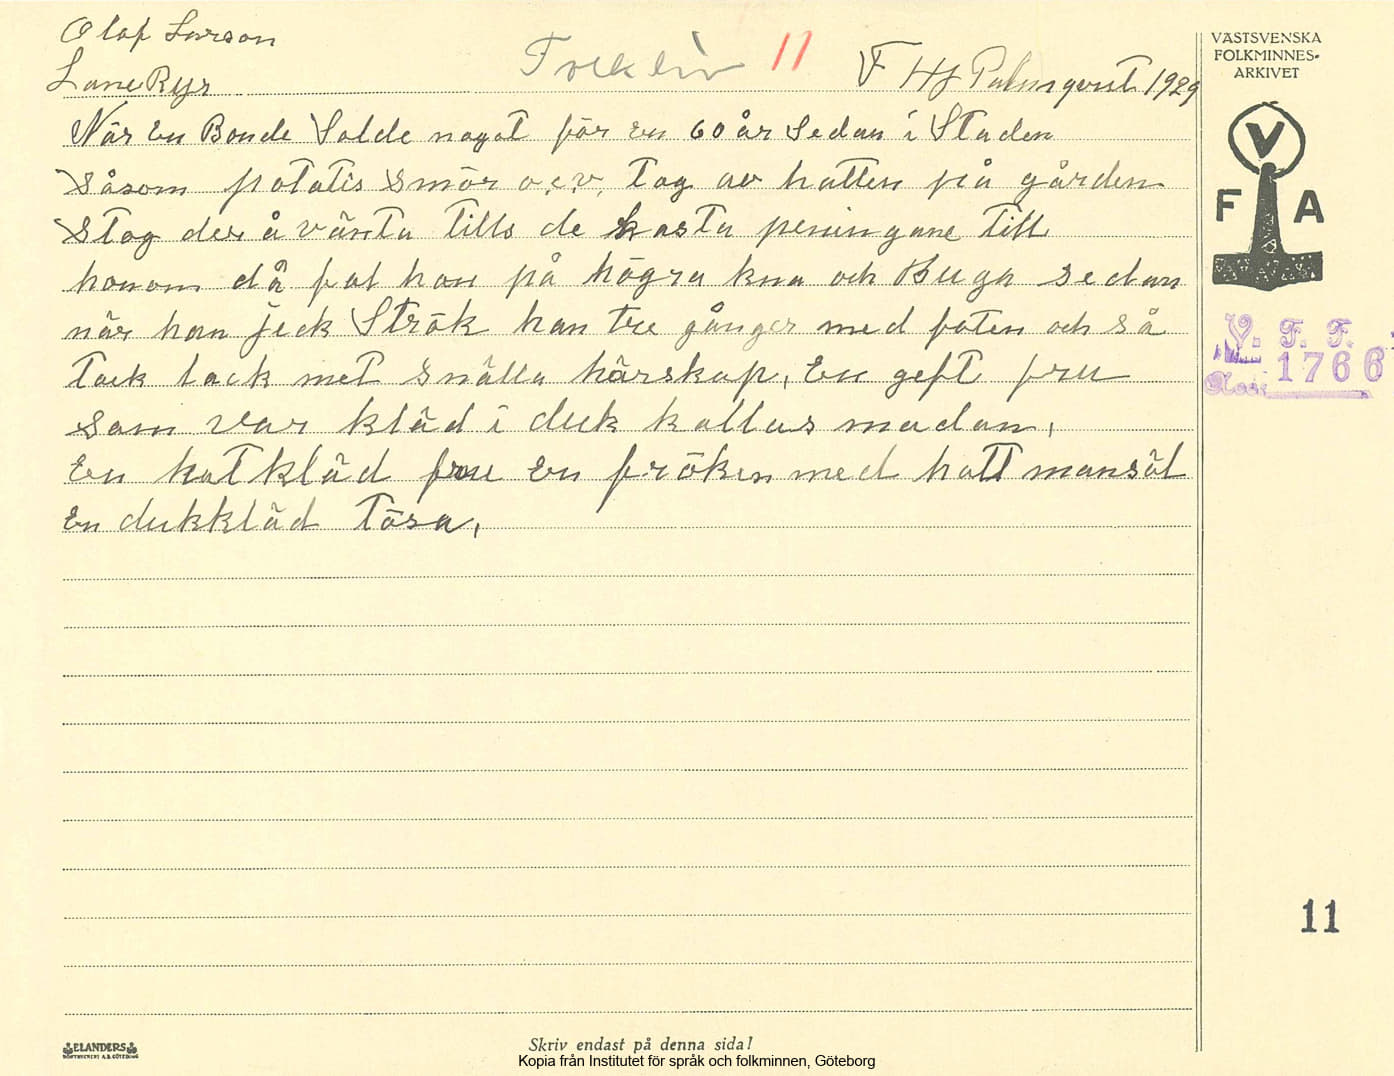 Olof Larson
Lane Ryr
Folkliv 11 F Hj Palmqvist 1929
När en Bonde Solde nagot för en 60 år Sedan i Staden
såsom potatis smör o.s.v. tog av hatten på gården
stog der å vänta tills de kasta peningane till
honom då fal han på högra kna och Buga sedan
når han jick Strök han tre gånger med foten och så
tack tack met snälla härskap, En geft fru
som var kläd i duk kallas madam,
En hatkläd fru en fröken med hatt mansäl
En dukkläd Tösa,
VÄSTSVENSKA
FOLKMINNES-
ARKIVET
V
F A
V. F. F.
1766
11
ELANDERS
Skriv endast på denna sida!
Kopia från Institutet för språk och folkminnen, Göteborg